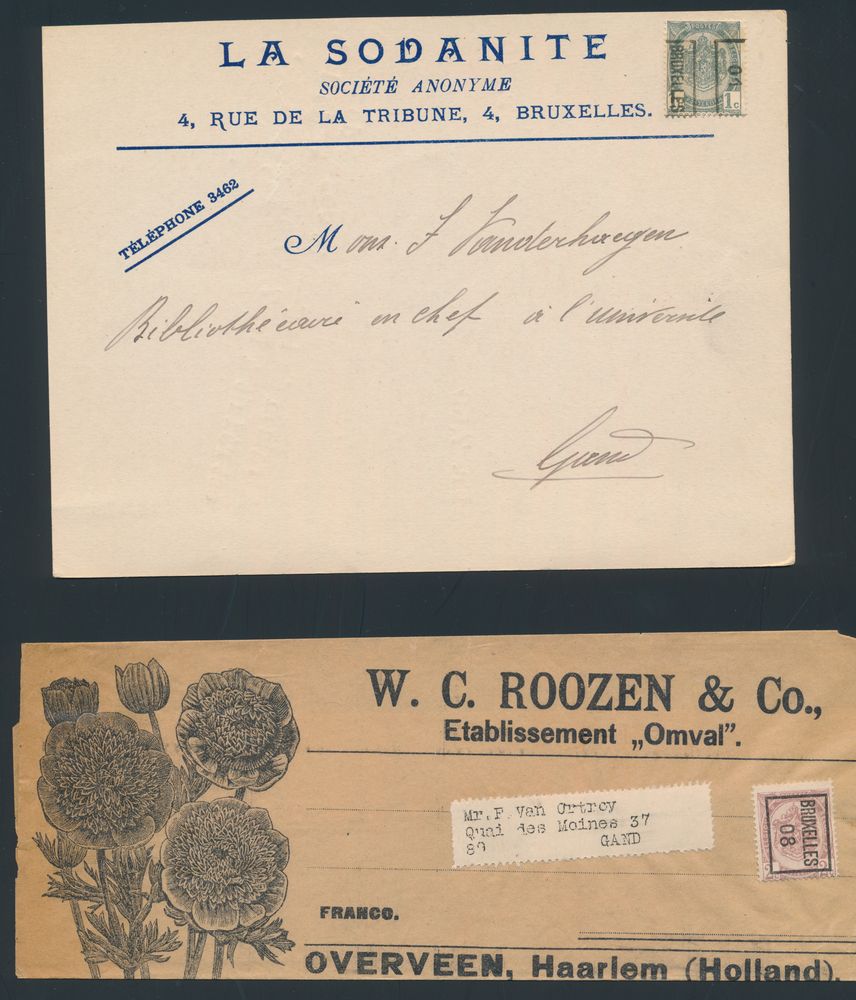 LA SODANITE
SOCIÉTÉ ANONYME
4, RUE DE LA TRIBUNE, 4, BRUXELLES.
BRUXELLES 01
1c
TÉLÉPHONE 3462
Mons. F Vanderhaegen
Bibliothécaire en chef à l'université
Gand
W. C. ROOZEN & Co.,
Etablissement „Omval".
Mr.F.Van Ortroy
Quai des Moines 37
89 GAND
BRUXELLES
08
FRANCO.
OVERVEEN, Haarlem (Holland).